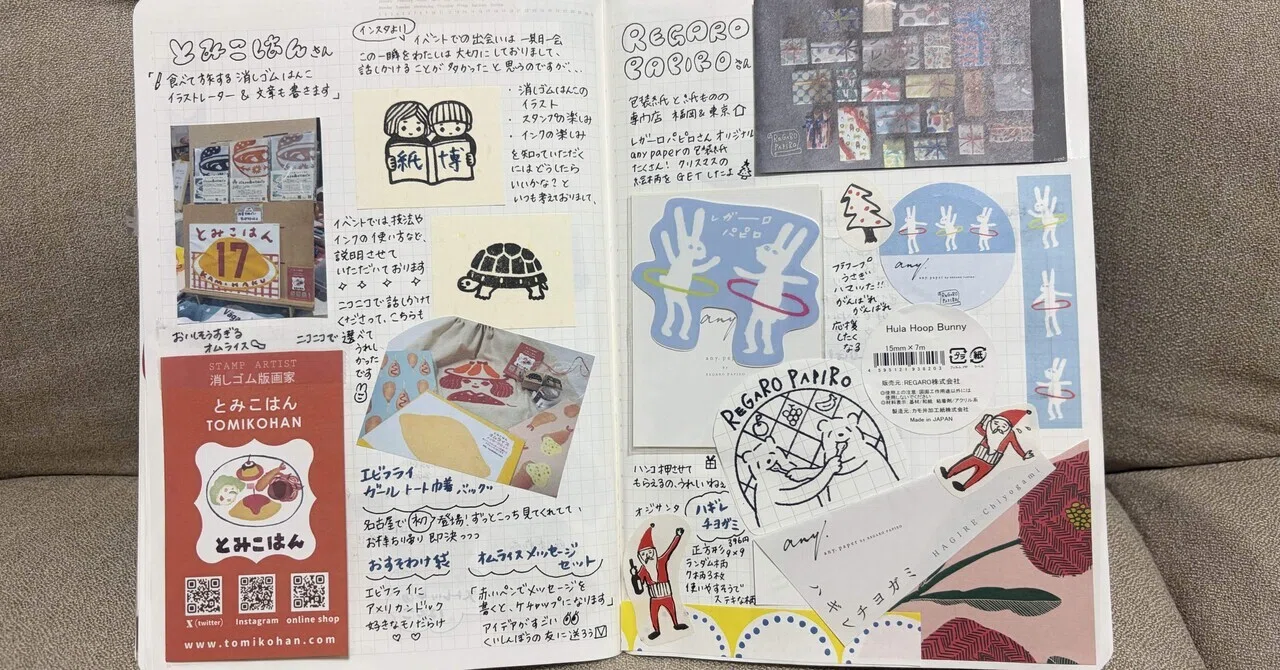 とみこはんさん
「食べて旅する消しゴムはんこ
イラストレーター & 文章も書きます」
とみこはん
17
おいしそうすぎる
オムライス
STAMP ARTIST
消しゴム版画家
とみこはん
TOMIKOHAN
とみこはん
X (twitter)
Instagram
online shop
www.tomikohan.com
インスタより
イベントでの出会いは一期一会
この一瞬をわたしは大切にしておりまして、
話しかけることが多かったと思うのですが、、、
紙博
・消しゴムはんこの
イラスト
・スタンプの楽しみ
・インクの楽しみ
を知っていただく
にはどうしたら
いいかな?と
いつも考えておりまして、
イベントでは技法や
インクの使い方など、
説明させて
いただいております
ニコニコで話しかけて
くださって、こちらも
ニコニコで選べて
うれしかったです
エビフライ
ガール トート巾着バッグ
名古屋で初登場!ずっとこっち見てくれてて、
お持ち帰り即決っっっ
おすそわけ袋
エビフライに
アメリカンドック
好きなモノだらけ
オムライスメッセージ
セット
「赤いペンでメッセージを
書くと、ケチャップになります」
アイデアがすごい
くいしんぼうの友に送ろう
REGARO
PAPIROさん
包装紙と紙ものの
専門店 福岡&東京
レガーロパピロさんオリジナル
any paperの包装紙
たくさん! クリスマスの
GETしたよ
REGARO
PAPIRO
レガーロ
パピロ
any.
any. paper
by REGARO PAPIRO
フラフープ
うさぎ
ハマった!!
がんばれ
がんばれ
応援
したく
なる
any.
any paper by REGARO PAPIRO
REGARO
PAPIRO
Hula Hoop Bunny
15mm × 7m
販売元: REGARO株式会社
製造元: カモ井加工紙株式会社
Made in JAPAN
REGARO PAPIRO
ハンコ押させて
もらえるの、うれしいねぇ
オジサンタ
ハギレ
チヨガミ
396円
正方形
9×9
ランダム柄
7柄3枚
使いやすそうで
ステキな柄
any.
any. paper by REGARO PAPIRO
HAGIRE Chiyogami
ハギレチヨガミ